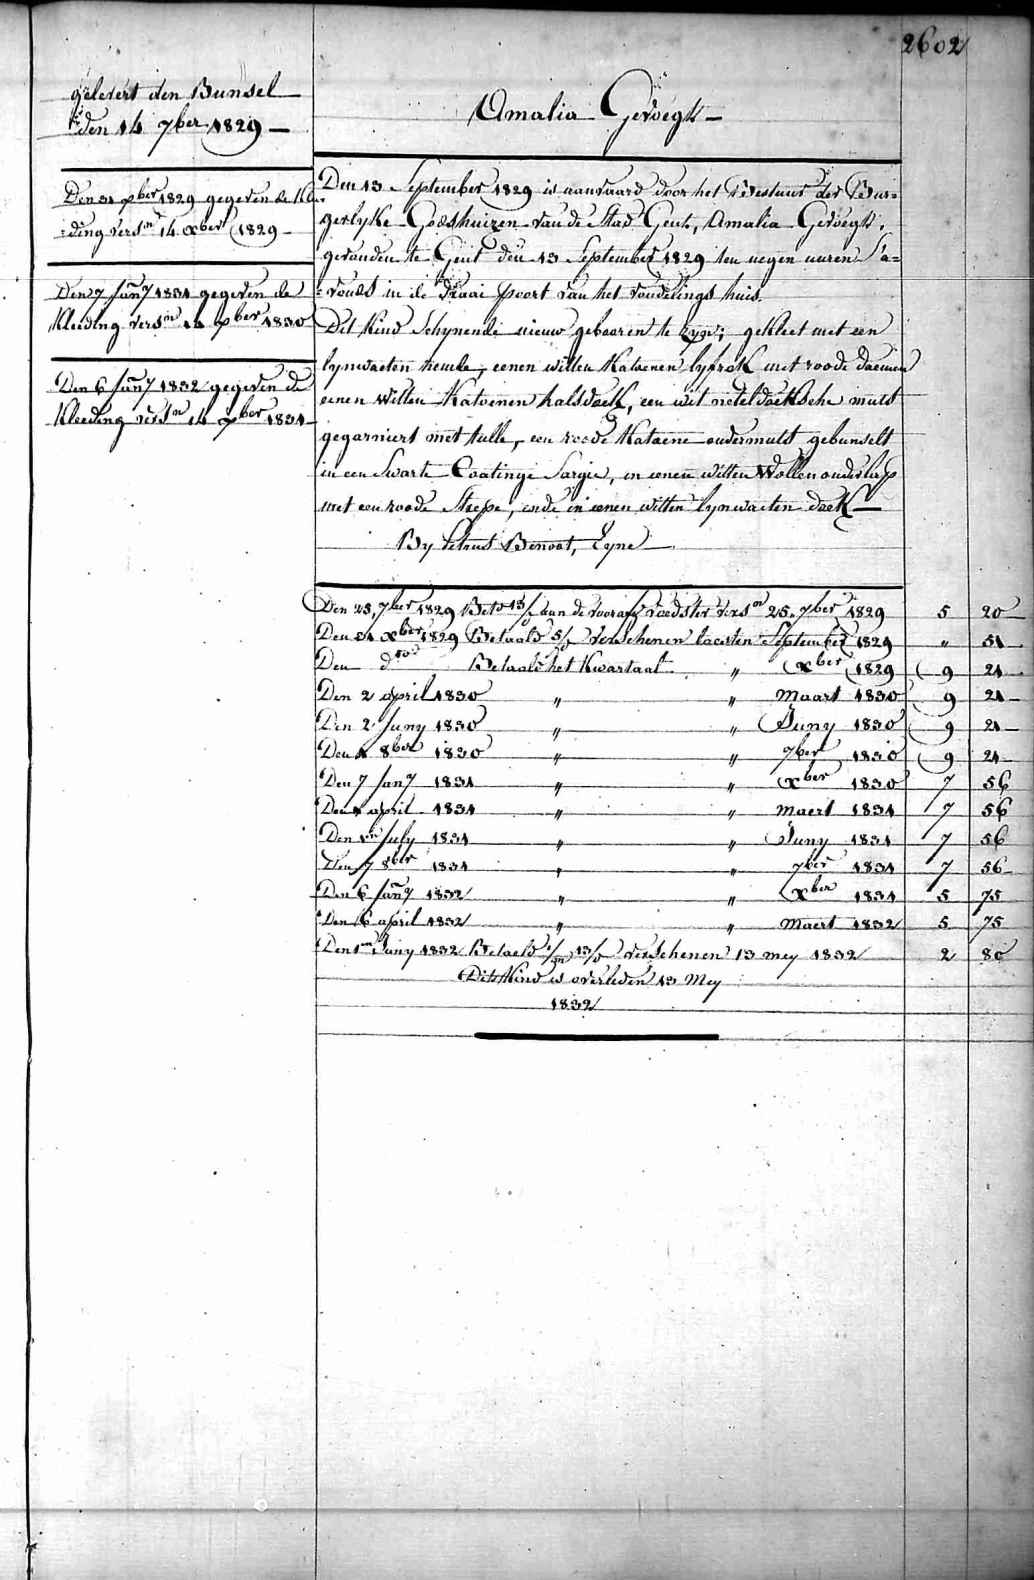 2602
gelevert den Bunsel
den 14 7ber 1829
Den 31 xber 1829 gegeven de Klee-
ding versn 14 xber 1829
Den 7 Jany 1831 gegeven de
Kleeding versn 14 xber 1830
Den 6 Jany 1832 gegeven de
Kleeding versn 14 xber 1831
Amalia Gevoegt
Den 13 September 1829 is aanvaard door het Bestuur der Bur-
gerlyke Godshuizen van de Stad Gent, Amalia Gevoegt,
gevonden te Gent den 13 September 1829 ten negen uuren S'a-
vonds in de draai poort van het vondelings huis.
Dit Kind Schynende nieuw gebooren te zyn; gekleet met een
lynwaeten hemde, eenen witten Katoenen lyfrok met roode
eenen witten Katoenen halsdoek, een wit neteldoeksche muts
gegarniert met tulle, een roode Katoene ondermuts gebunselt
in een Swarte Coatinge Sargie, en eenen witten Wollen
met een roode Strepe, ende in eenen witten lynwaeten doek
By Petrus Benoot, Eyne
Den 25, 7ber 1829 Bets 13/ aan de voorafg voedster versn 25, 7ber 1829 5 20
Den 31 xber 1829 Betaald 5/ verschenen laesten September 1829 " 51
Den dto Betaald het Kwartaal " xber 1829 9 21
Den 2 april 1830 " " Maart 1830 9 21
Den 2 Juny 1830 " " Juny 1830 9 21
Den 1 8ber 1830 " " 7ber 1830 9 21
Den 7 Jany 1831 " " xber 1830 7 56
Den 1 april 1831 " " Maert 1831 7 56
Den 1en July 1831 " " Juny 1831 7 56
Den 7 8ber 1831 " " 7ber 1831 7 56
Den 6 Jany 1832 " " xber 1831 5 75
Den 6 april 1832 " " Maert 1832 5 75
Den 1en Juny 1832 Betaeld 1/m 13/ verschenen 13 mey 1832 2 80
Dit Kind is overleden 13 Mey
1832